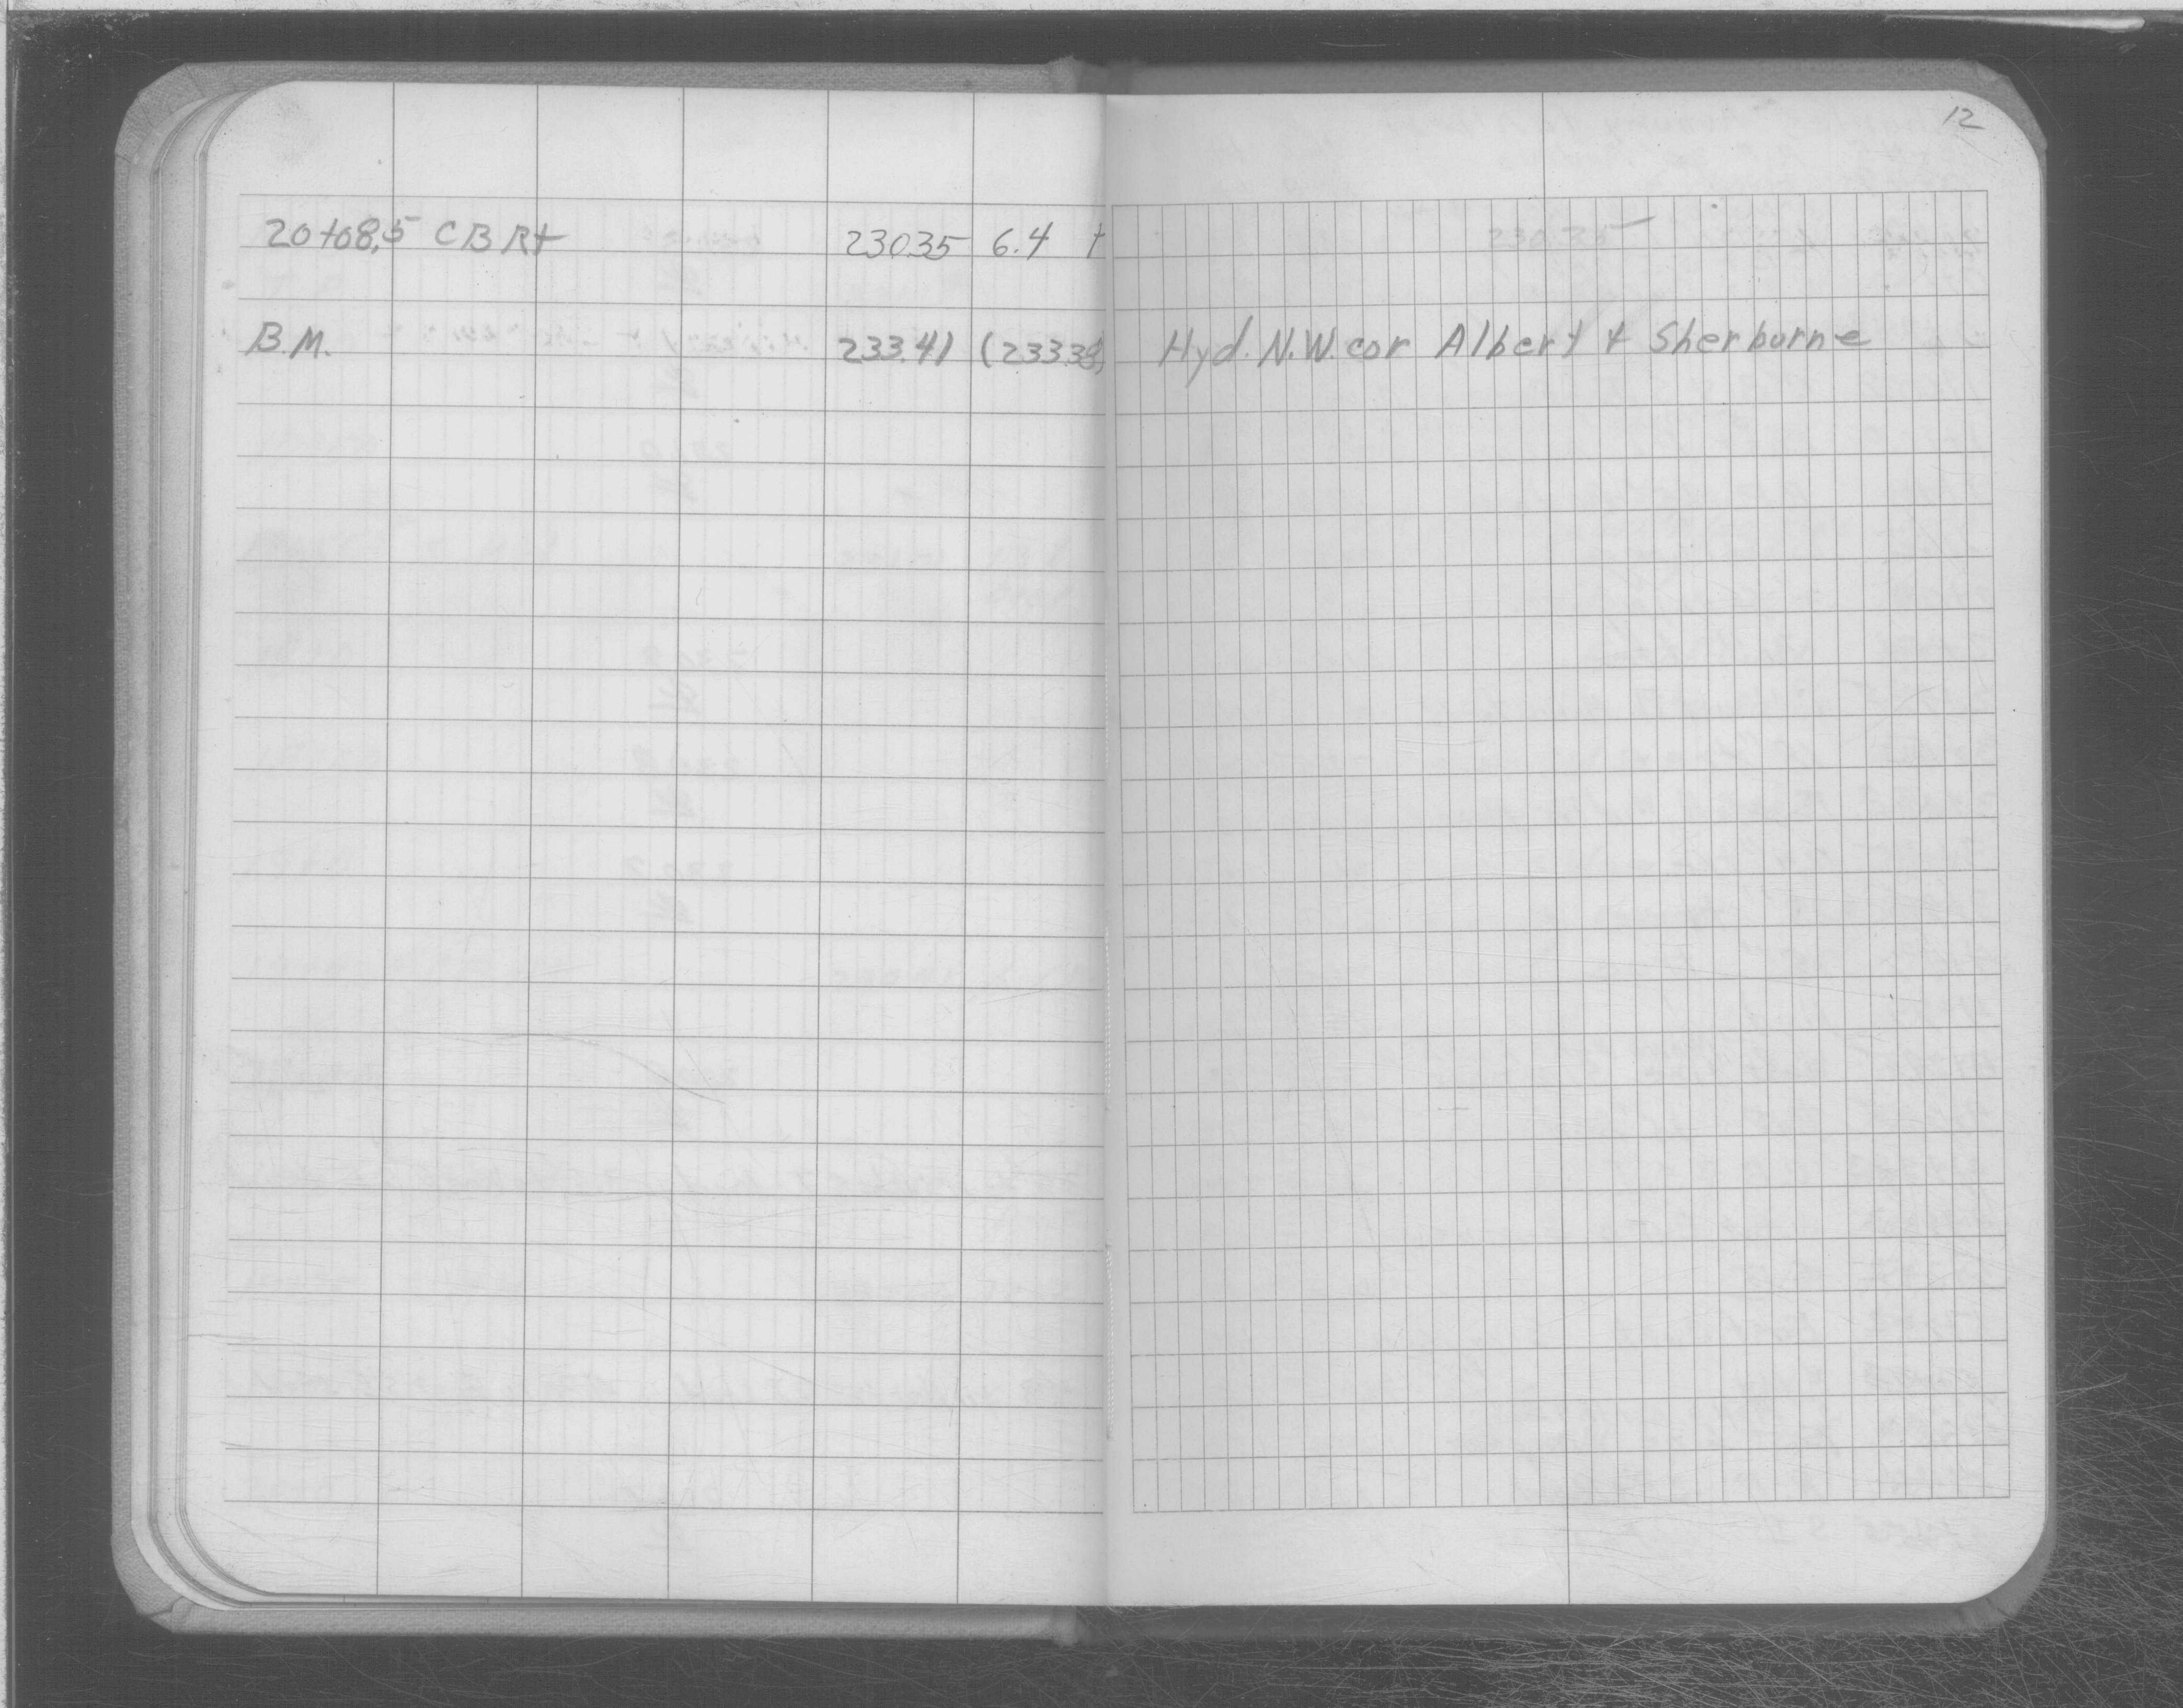 12
20+08,5 C B Rt 230.35 6.4 +
B.M. 233.41 (233.38) Hyd. N.W. cor Albert + Sherburne